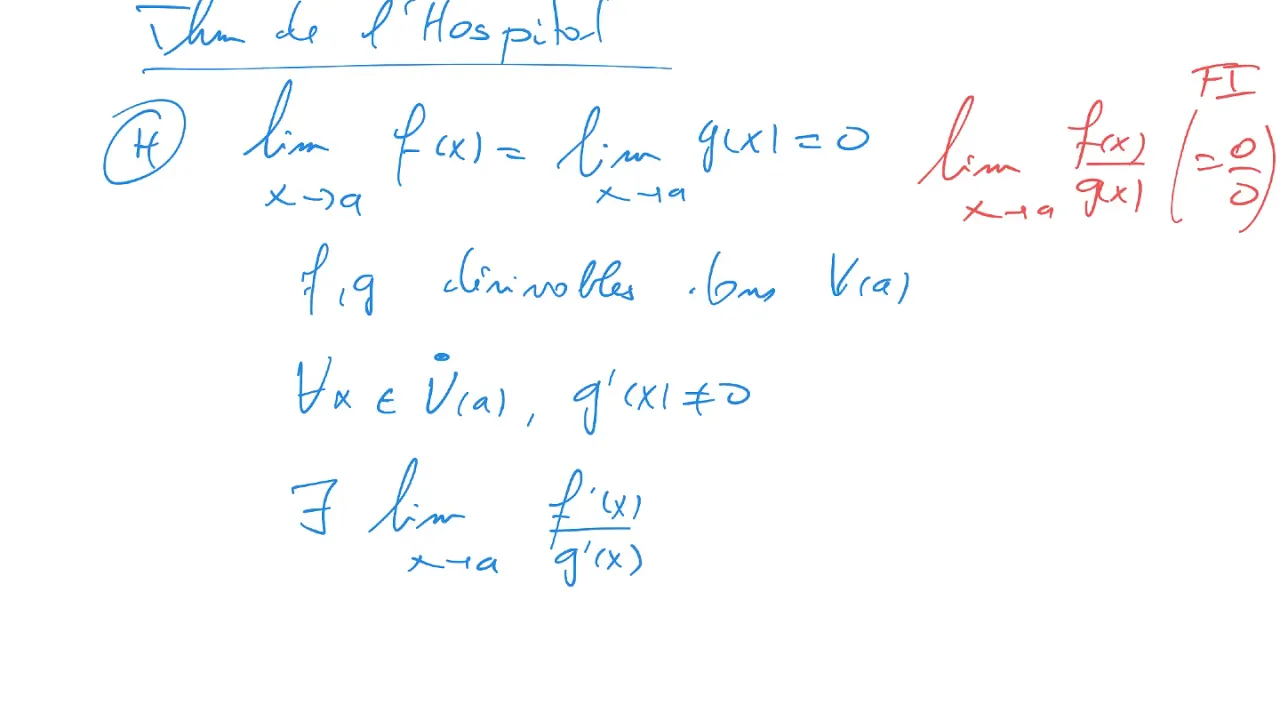 Thm de l'Hospital
(H) lim x→a f(x) = lim x→a g(x) = 0
lim x→a f(x)/g(x) (= 0/0) FI
f, g dérivables dans V(a)
∀x ∈ V̇(a), g'(x) ≠ 0
∃ lim x→a f'(x)/g'(x)